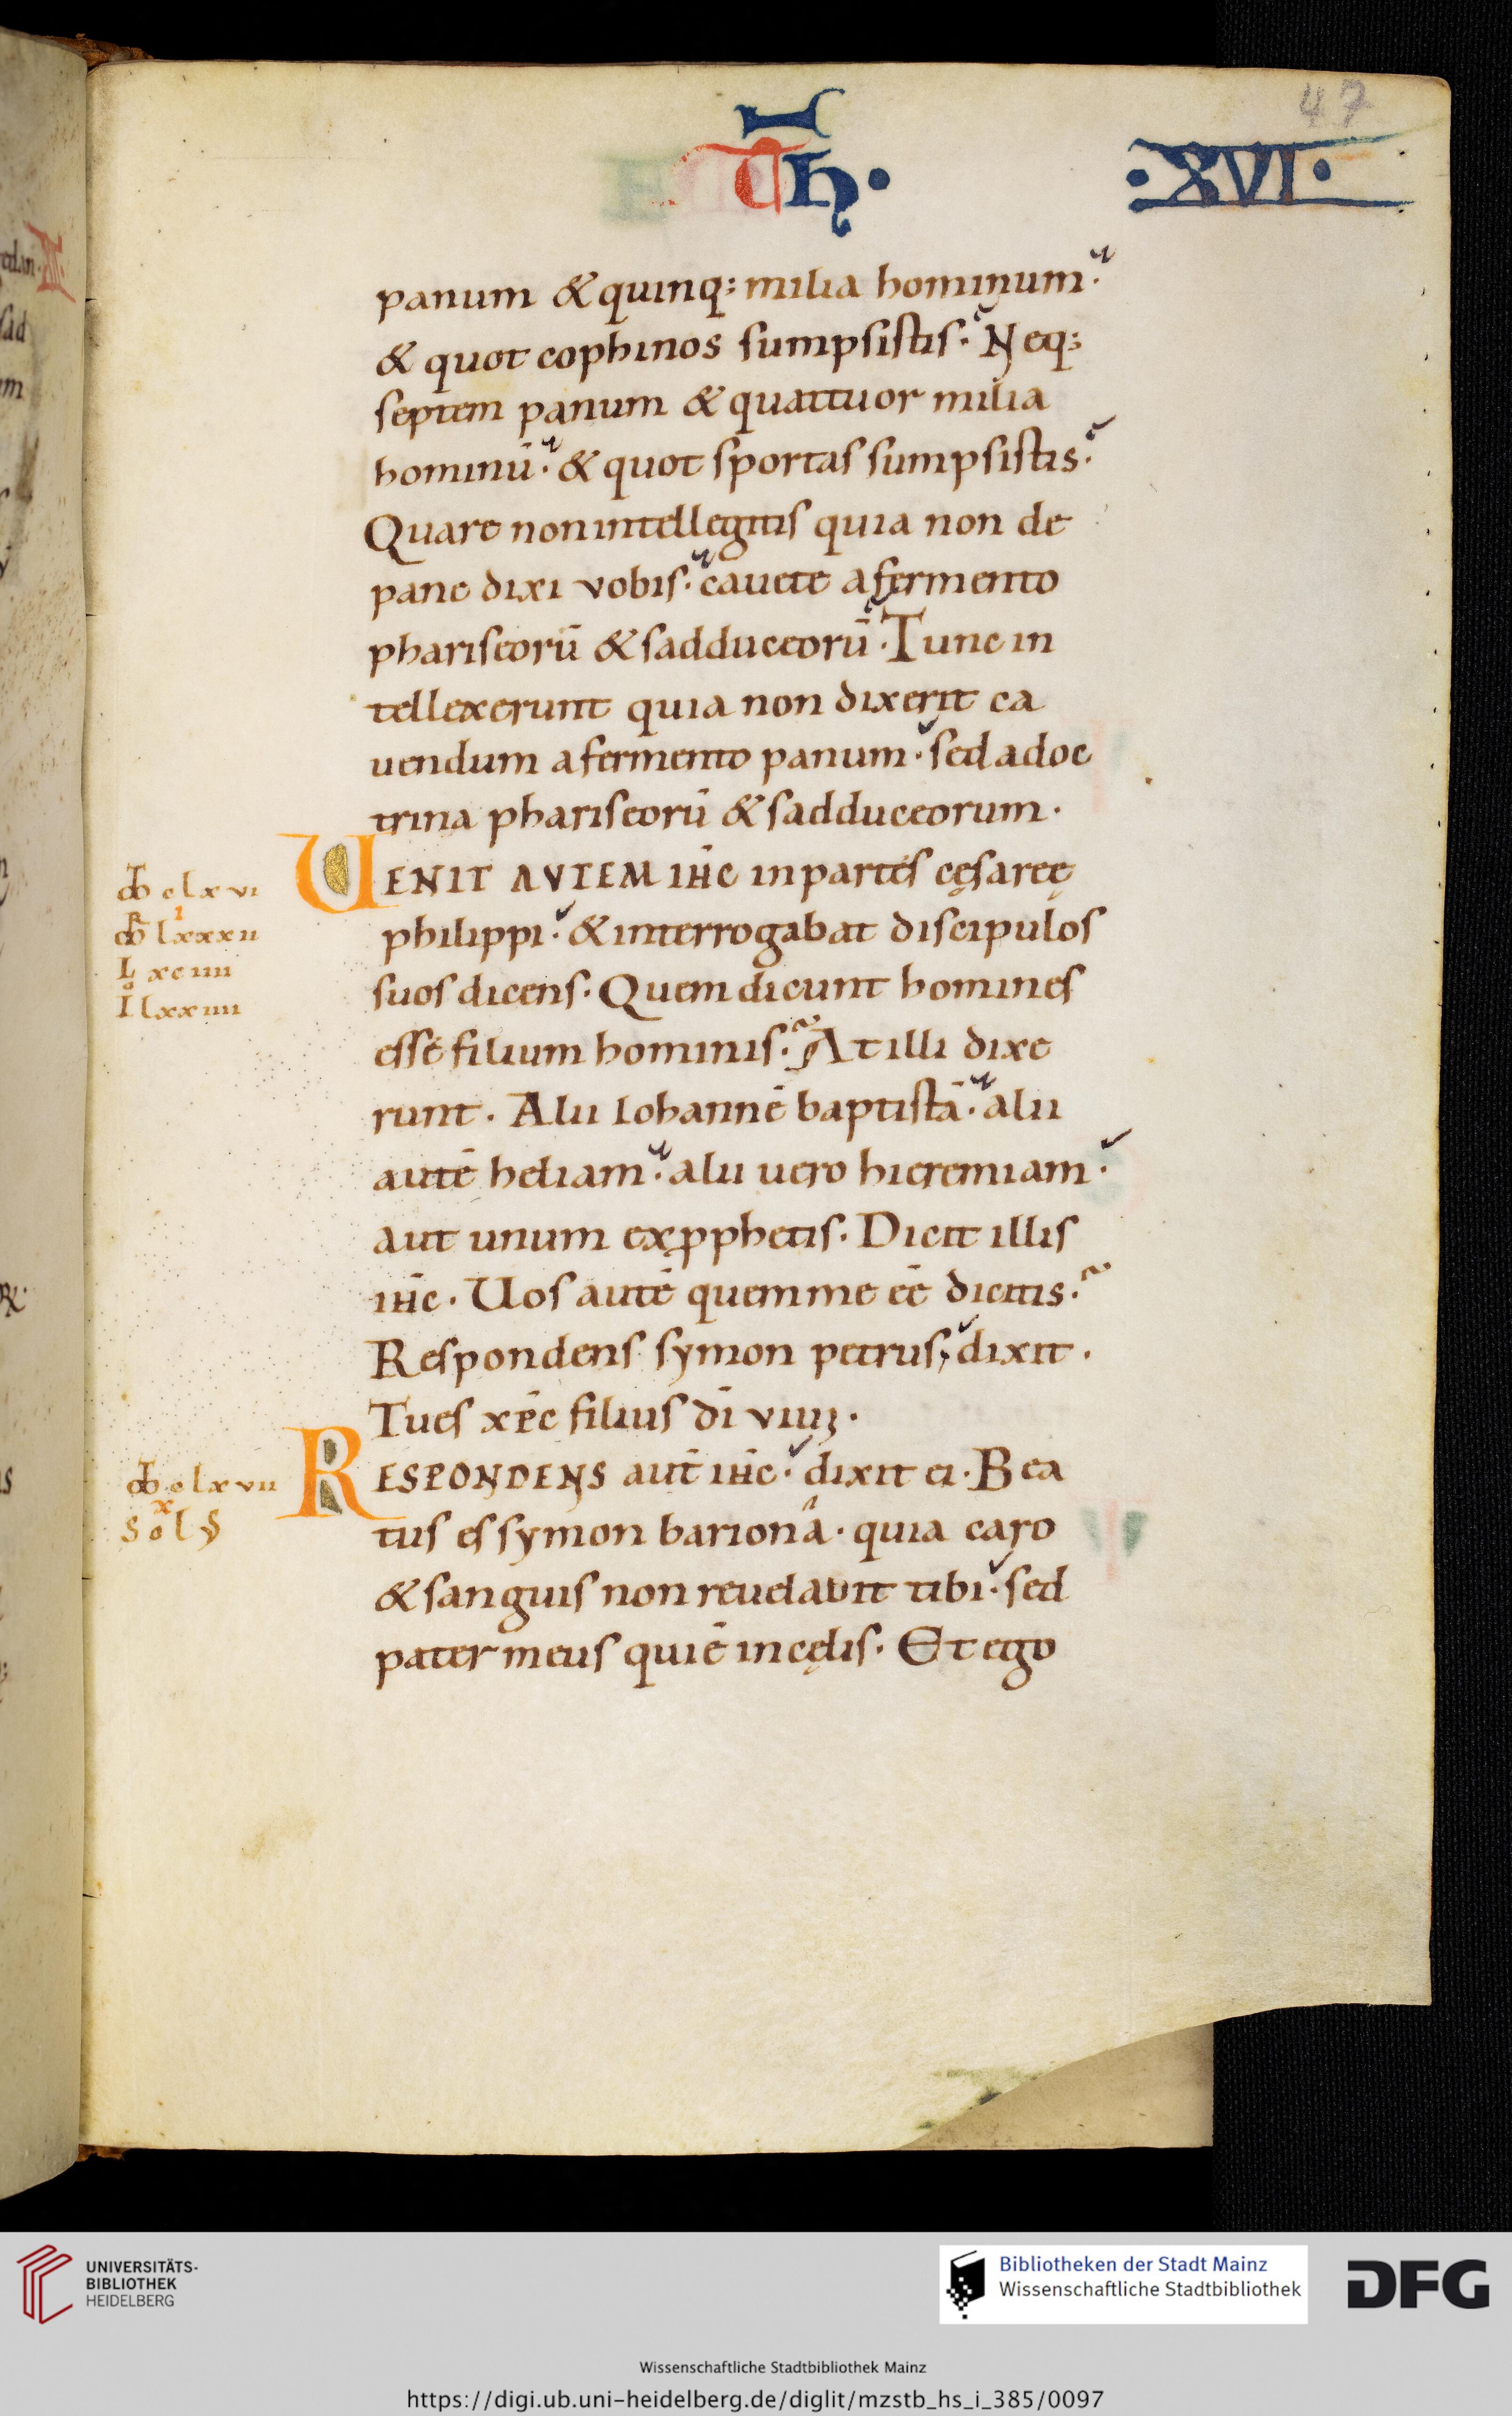 47
TH·
·XVI·
panum & quinq: milia hominum·
& quot cophinos sumpsistis· Neq:
septem panum & quattuor milia
hominū· & quot sportas sumpsistis·
Quare non intellegitis quia non de
pane dixi vobis· cauete a fermento
phariseorū & sadduceorū· Tunc in
tellexerunt quia non dixerit ca
uendum a fermento panum· sed a doc
trina phariseorū & sadduceorum·
UENIT AVTEM ihc in partes cęsareę
philippi· & interrogabat discipulos
suos dicens· Quem dicunt homines
esse filium hominis· At illi dixe
runt· Alii Iohannē baptistā· alii
autē heliam· alii uero hieremiam·
aut unum ex pphetis· Dicit illis
ihc· Uos autē quem me eē dicitis·
Respondens symon petrus; dixit·
Tu es xpc filius dī viui·
RESPONDENS aut ihc· dixit ei· Bea
tus es symon bariona· quia caro
& sanguis non reuelauit tibi· sed
pater meus qui ē in cęlis· Et ego
clxvi
lxxxii
L xciiii
I lxxiiii
clxvii
UNIVERSITÄTS-
BIBLIOTHEK
HEIDELBERG
Bibliotheken der Stadt Mainz
Wissenschaftliche Stadtbibliothek
DFG
Wissenschaftliche Stadtbibliothek Mainz
https://digi.ub.uni-heidelberg.de/diglit/mzstb_hs_i_385/0097